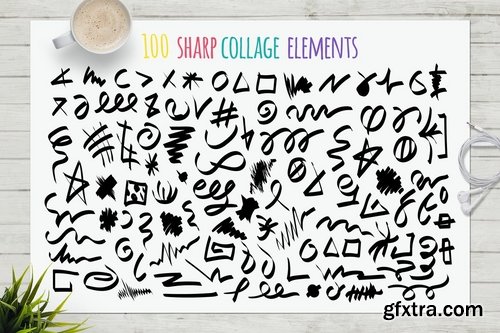 100 SHARP COLLAGE ELEMENTS
gfxtra.com